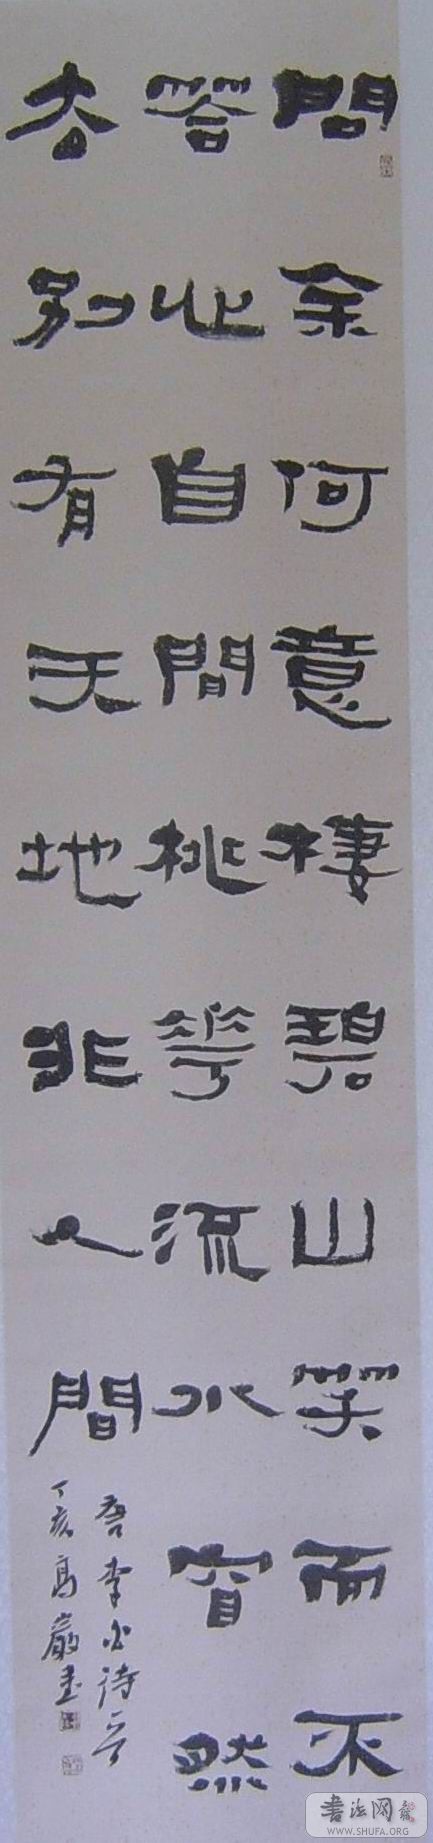 問余何意棲碧山笑而不
答心自間桃華流水窅然
杳別有天地非人間
唐李白詩一首
丁亥高嚴書
书法网
WWW.SHUFA.ORG